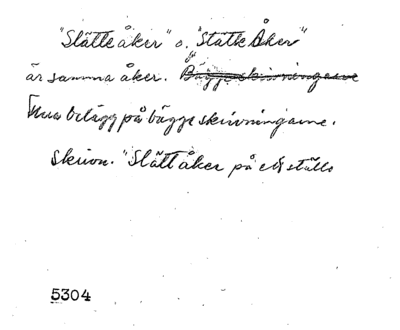 "Slätteåker" o. "Statle Åker"
är samma åker. Bägge skrivningarne
Finns belägg på bägge skrivningarne.
Skrivn. "Slättåker på ett ställe
5304